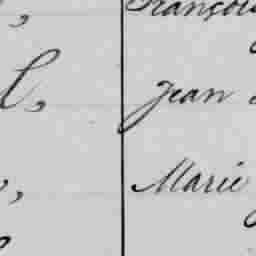 François
l,
Jean
Marie